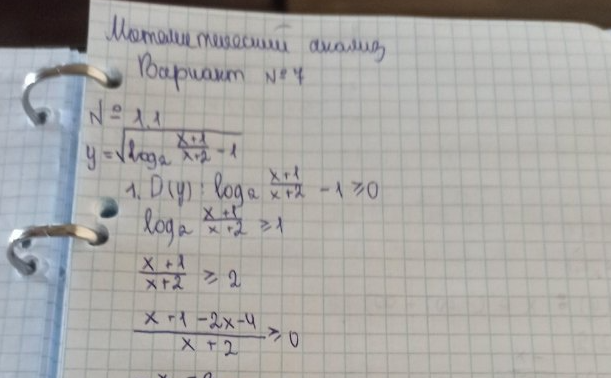 Математический анализ
Вариант №7
№ 1.1
y = √(log₂ (x+1)/(x+2) - 1)
1. D(y): log₂ (x+1)/(x+2) - 1 ≥ 0
log₂ (x+1)/(x+2) ≥ 1
(x+1)/(x+2) ≥ 2
(x+1-2x-4)/(x+2) ≥ 0